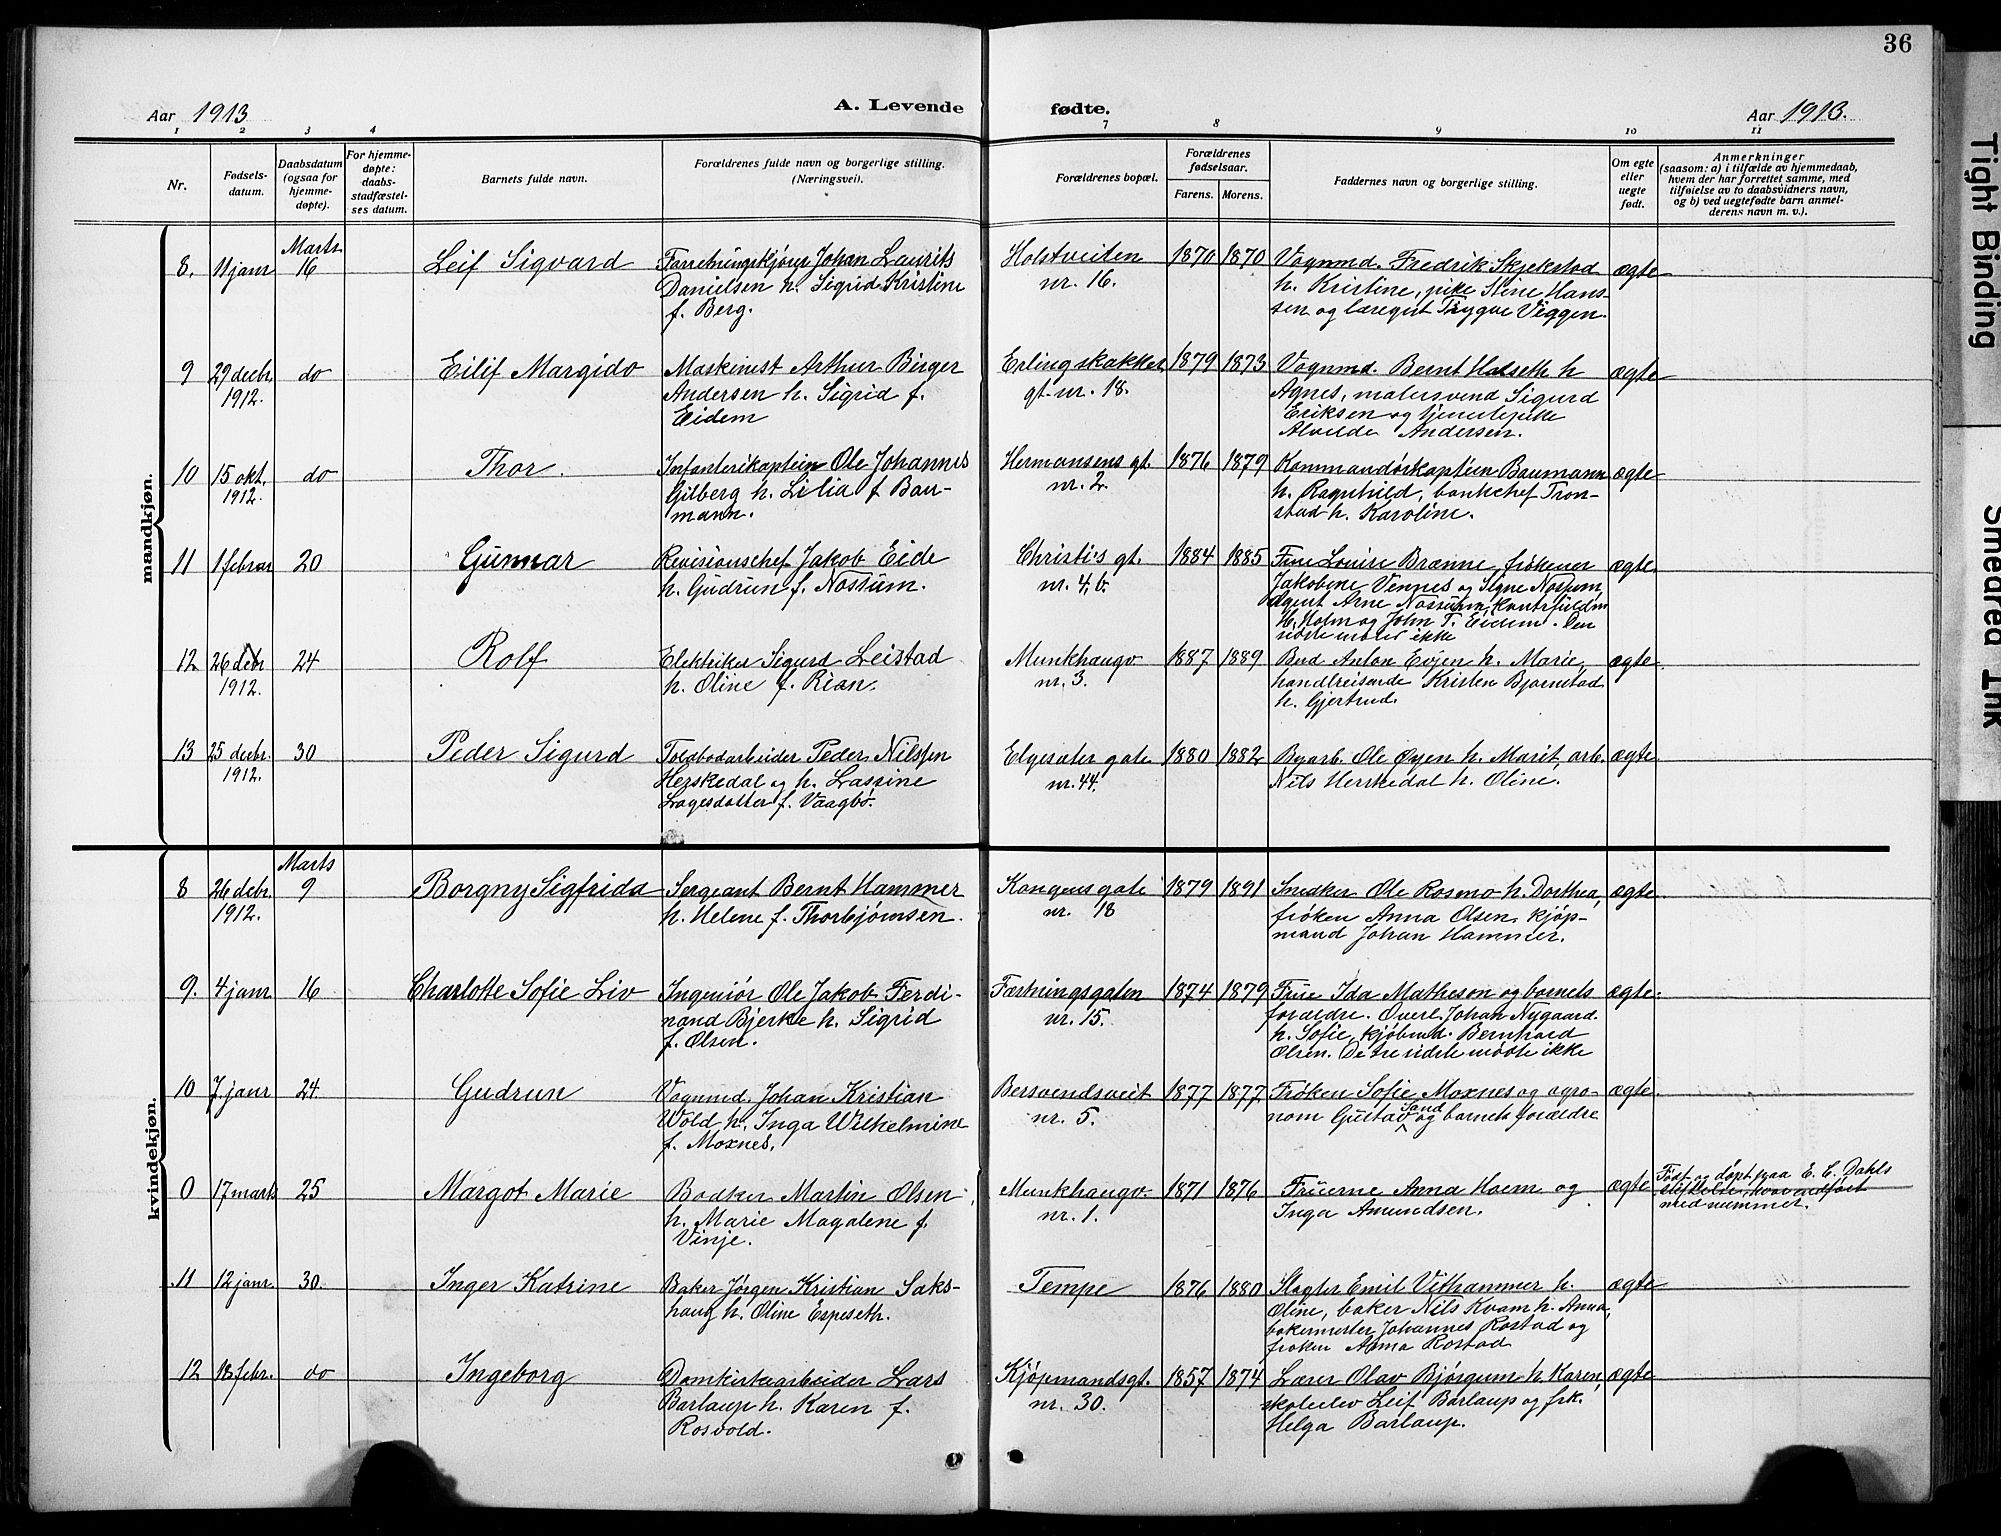 36
Aar 1913
A. Levende
fødte.
Aar 1913.
1 2 3 4 7 8 9 10 11
Nr.
Fødsels-
datum.
Daabsdatum
(ogsaa for
hjemme-
døpte).
For hjemme-
døpte:
daabs-
stadfæstel-
ses datum.
Barnets fulde navn.
Forældrenes fulde navn og borgerlige stilling.
(Næringsvei).
Forældrenes bopæl.
Forældrenes
fødselsaar.
Farens. Morens.
Faddernes navn og borgerlige stilling.
Om egte
eller
uegte
født.
Anmerkninger
(saasom: a) i tilfælde av hjemmedaab,
hvem der har forrettet samme, med
tilføielse av to daabsvidners navn,
og b) ved uegtefødte barn anmel-
derens navn m. v.).
mandkjøn.
Marts
8. 11 janr 16 Leif Sigvard
Forretningskjører Johan Laurits
Danielsen h. Sigrid Kristine
f. Berg.
Holstveiten
nr. 16.
1870 1870
Vognmd. Fredrik Skjekstad
h. Kristine, pike Stine Hans-
sen og læregut Trygve Viggen.
ægte
9 29 decbr.
1912.
do Eilif Margido
Maskinist Arthur Birger
Andersen h. Sigrid f.
Eidem
Erling skakkes
gt. nr. 18.
1879 1873
Vognmd. Bernt Halseth h
Agnes, malersvend Sigurd
Eriksen og tjenestepike
Alvilde Andersen.
ægte
10 15 okt.
1912.
do Thor.
Infanterikaptein Ole Johannes
Gilberg h. Lilia f. Bau-
mann.
Hermansens gt.
nr. 2.
1876 1879
Kommandørkaptein Baumann
h. Ragnhild, bankchef Tron-
stad h. Karoline.
ægte
11 1 febrar 20 Gunnar
Revisionschef Jakob Eide
h. Gudrun f. Nossum.
Christi's gt.
nr. 4, b.
1884 1885
Frue Louise Brænne, frøkener
Jakobine Vennes og Signe Nossum,
agent Arne Nossum, kontrfuldm
H. Holm og John T. Eidem. Den
sidste møder ikke
ægte.
12 26 debr
1912.
24 Rolf
Elektriker Sigurd Leistad
h. Oline f. Rian.
Munkhaugv
nr. 3.
1887 1889
Bud Anton Evjen h. Marie,
handlreisende Kristen Bjørnstad
h. Gjertrud.
ægte.
13 25 decbr.
1912.
30 Peder Sigurd
Toldbodarbeider Peder Nilssen
Herskedal og h. Lassine
Lagesdatter f. Vaagbø.
Elgesæter gate
nr. 44.
1880 1882
Byarb. Ole Øyen h. Marit, arb.
Nils Herskedal h. Oline.
ægte.
kvindekjøn.
Marts
8 26 debr.
1912.
9 Borgny Sigfrida
Sergeant Bernt Hammer
h. Helene f. Thorbjørnsen.
Kongens gate
nr. 18
1879 1891
Snedker Ole Rosmo h. Dorthea,
frøken Anna Olsen, kjøp-
mand Johan Hammer.
ægte.
9. 4 janr 16 Charlotte Sofie Liv
Ingeniør Ole Jakob Ferdi-
nand Bjerke h. Sigrid
f. Olsen.
Fjærningsgaten
nr. 15.
1874 1879
Frue Ida Matheson og barnets
forældre. Overl. Johan Nygaard
h. Sofie, kjøbmd. Bernhard
Olsen. De tre sidste mødte ikke
ægte.
10 7 janr 24. Gudrun
Vognmd. Johan Kristian
Wold h. Inga Wilhelmine
f. Moxnes.
Bersvendsveit
nr. 5.
1877 1877
Frøken Sofie Moxnes og agro-
nom Gustav Sand og barnets forældre
ægte.
0 17 marts 25 Margot Marie
Bødker Martin Olsen,
h. Marie Magdalene f.
Vinje.
Munkhaugv.
nr. 1.
1871 1876
Fruerne Anna Hoem og
Inga Amundsen.
ægte
Født og døpt paa E. C. Dahls
stiftelse, hvor indført
med nummer.
11 12 janr. 30. Inger Katrine
Baker Jørgen Kristian Saks-
haug h. Oline Espeseth.
Tempe
1876 1880
Slagter Emil Vithammer h.
Oline, baker Nils Kvam h. Anna,
bakermester Johannes Rostad og
frøken Anna Rostad
ægte
12 18 febr. do Ingeborg
Domkirkearbeider Lars
Barlaup h. Karen f.
Rosvold.
Kjøpmandsgt.
nr. 30.
1857 1874
Lærer Olav Bjørgum h. Karen,
skoleelev Leif Barlaup og frk.
Helga Barlaup.
ægte
Tight Binding
Smeared Ink